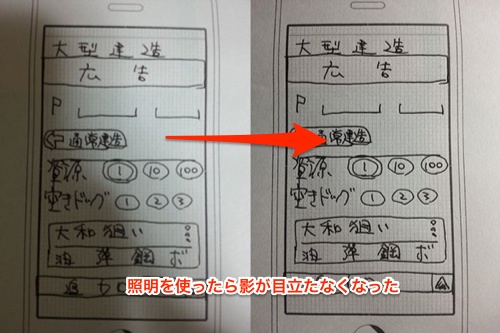 大型建造
広告
P
通常建造
資源 1 10 100
空きドック 1 2 3
大和狙い
油 弾 鋼 ボ
大型建造
広告
P
通常建造
資源 1 10 100
空きドック 1 2 3
大和狙い
油 弾 鋼 ボ
照明を使ったら影が目立たなくなった